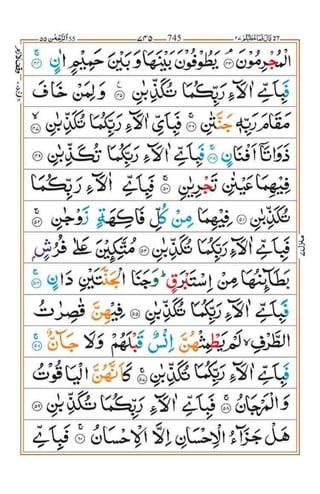 الرَّحْمٰن ٥٥ ٧٤٥ 745 قَالَ فَمَا خَطْبُكُمْ ٢٧
الْمُجْرِمُوْنَ ﴿٤٣﴾ يَطُوْفُوْنَ بَيْنَهَا وَبَيْنَ حَمِيْمٍ اٰنٍ ﴿٤٤﴾
فَبِاَيِّ اٰلَآءِ رَبِّكُمَا تُكَذِّبٰنِ ﴿٤٥﴾ وَلِمَنْ خَافَ
مَقَامَ رَبِّهٖ جَنَّتٰنِ ﴿٤٦﴾ فَبِاَيِّ اٰلَآءِ رَبِّكُمَا تُكَذِّبٰنِ ﴿٤٧﴾
ذَوَاتَآ اَفْنَانٍ ﴿٤٨﴾ فَبِاَيِّ اٰلَآءِ رَبِّكُمَا تُكَذِّبٰنِ ﴿٤٩﴾
فِيْهِمَا عَيْنٰنِ تَجْرِيٰنِ ﴿٥٠﴾ فَبِاَيِّ اٰلَآءِ رَبِّكُمَا
تُكَذِّبٰنِ ﴿٥١﴾ فِيْهِمَا مِنْ كُلِّ فَاكِهَةٍ زَوْجٰنِ ﴿٥٢﴾
فَبِاَيِّ اٰلَآءِ رَبِّكُمَا تُكَذِّبٰنِ ﴿٥٣﴾ مُتَّكِـِٕيْنَ عَلٰى فُرُشٍۭ
بَطَآئِنُهَا مِنْ اِسْتَبْرَقٍ ؕ وَجَنَا الْجَنَّتَيْنِ دَانٍ ﴿٥٤﴾
فَبِاَيِّ اٰلَآءِ رَبِّكُمَا تُكَذِّبٰنِ ﴿٥٥﴾ فِيْهِنَّ قٰصِرٰتُ
الطَّرْفِ ۙ لَمْ يَطْمِثْهُنَّ اِنْسٌ قَبْلَهُمْ وَلَا جَآنٌّ ﴿٥٦﴾
فَبِاَيِّ اٰلَآءِ رَبِّكُمَا تُكَذِّبٰنِ ﴿٥٧﴾ كَاَنَّهُنَّ الْيَاقُوْتُ
وَالْمَرْجَانُ ﴿٥٨﴾ فَبِاَيِّ اٰلَآءِ رَبِّكُمَا تُكَذِّبٰنِ ﴿٥٩﴾
هَلْ جَزَآءُ الْاِحْسَانِ اِلَّا الْاِحْسَانُ ﴿٦٠﴾ فَبِاَيِّ